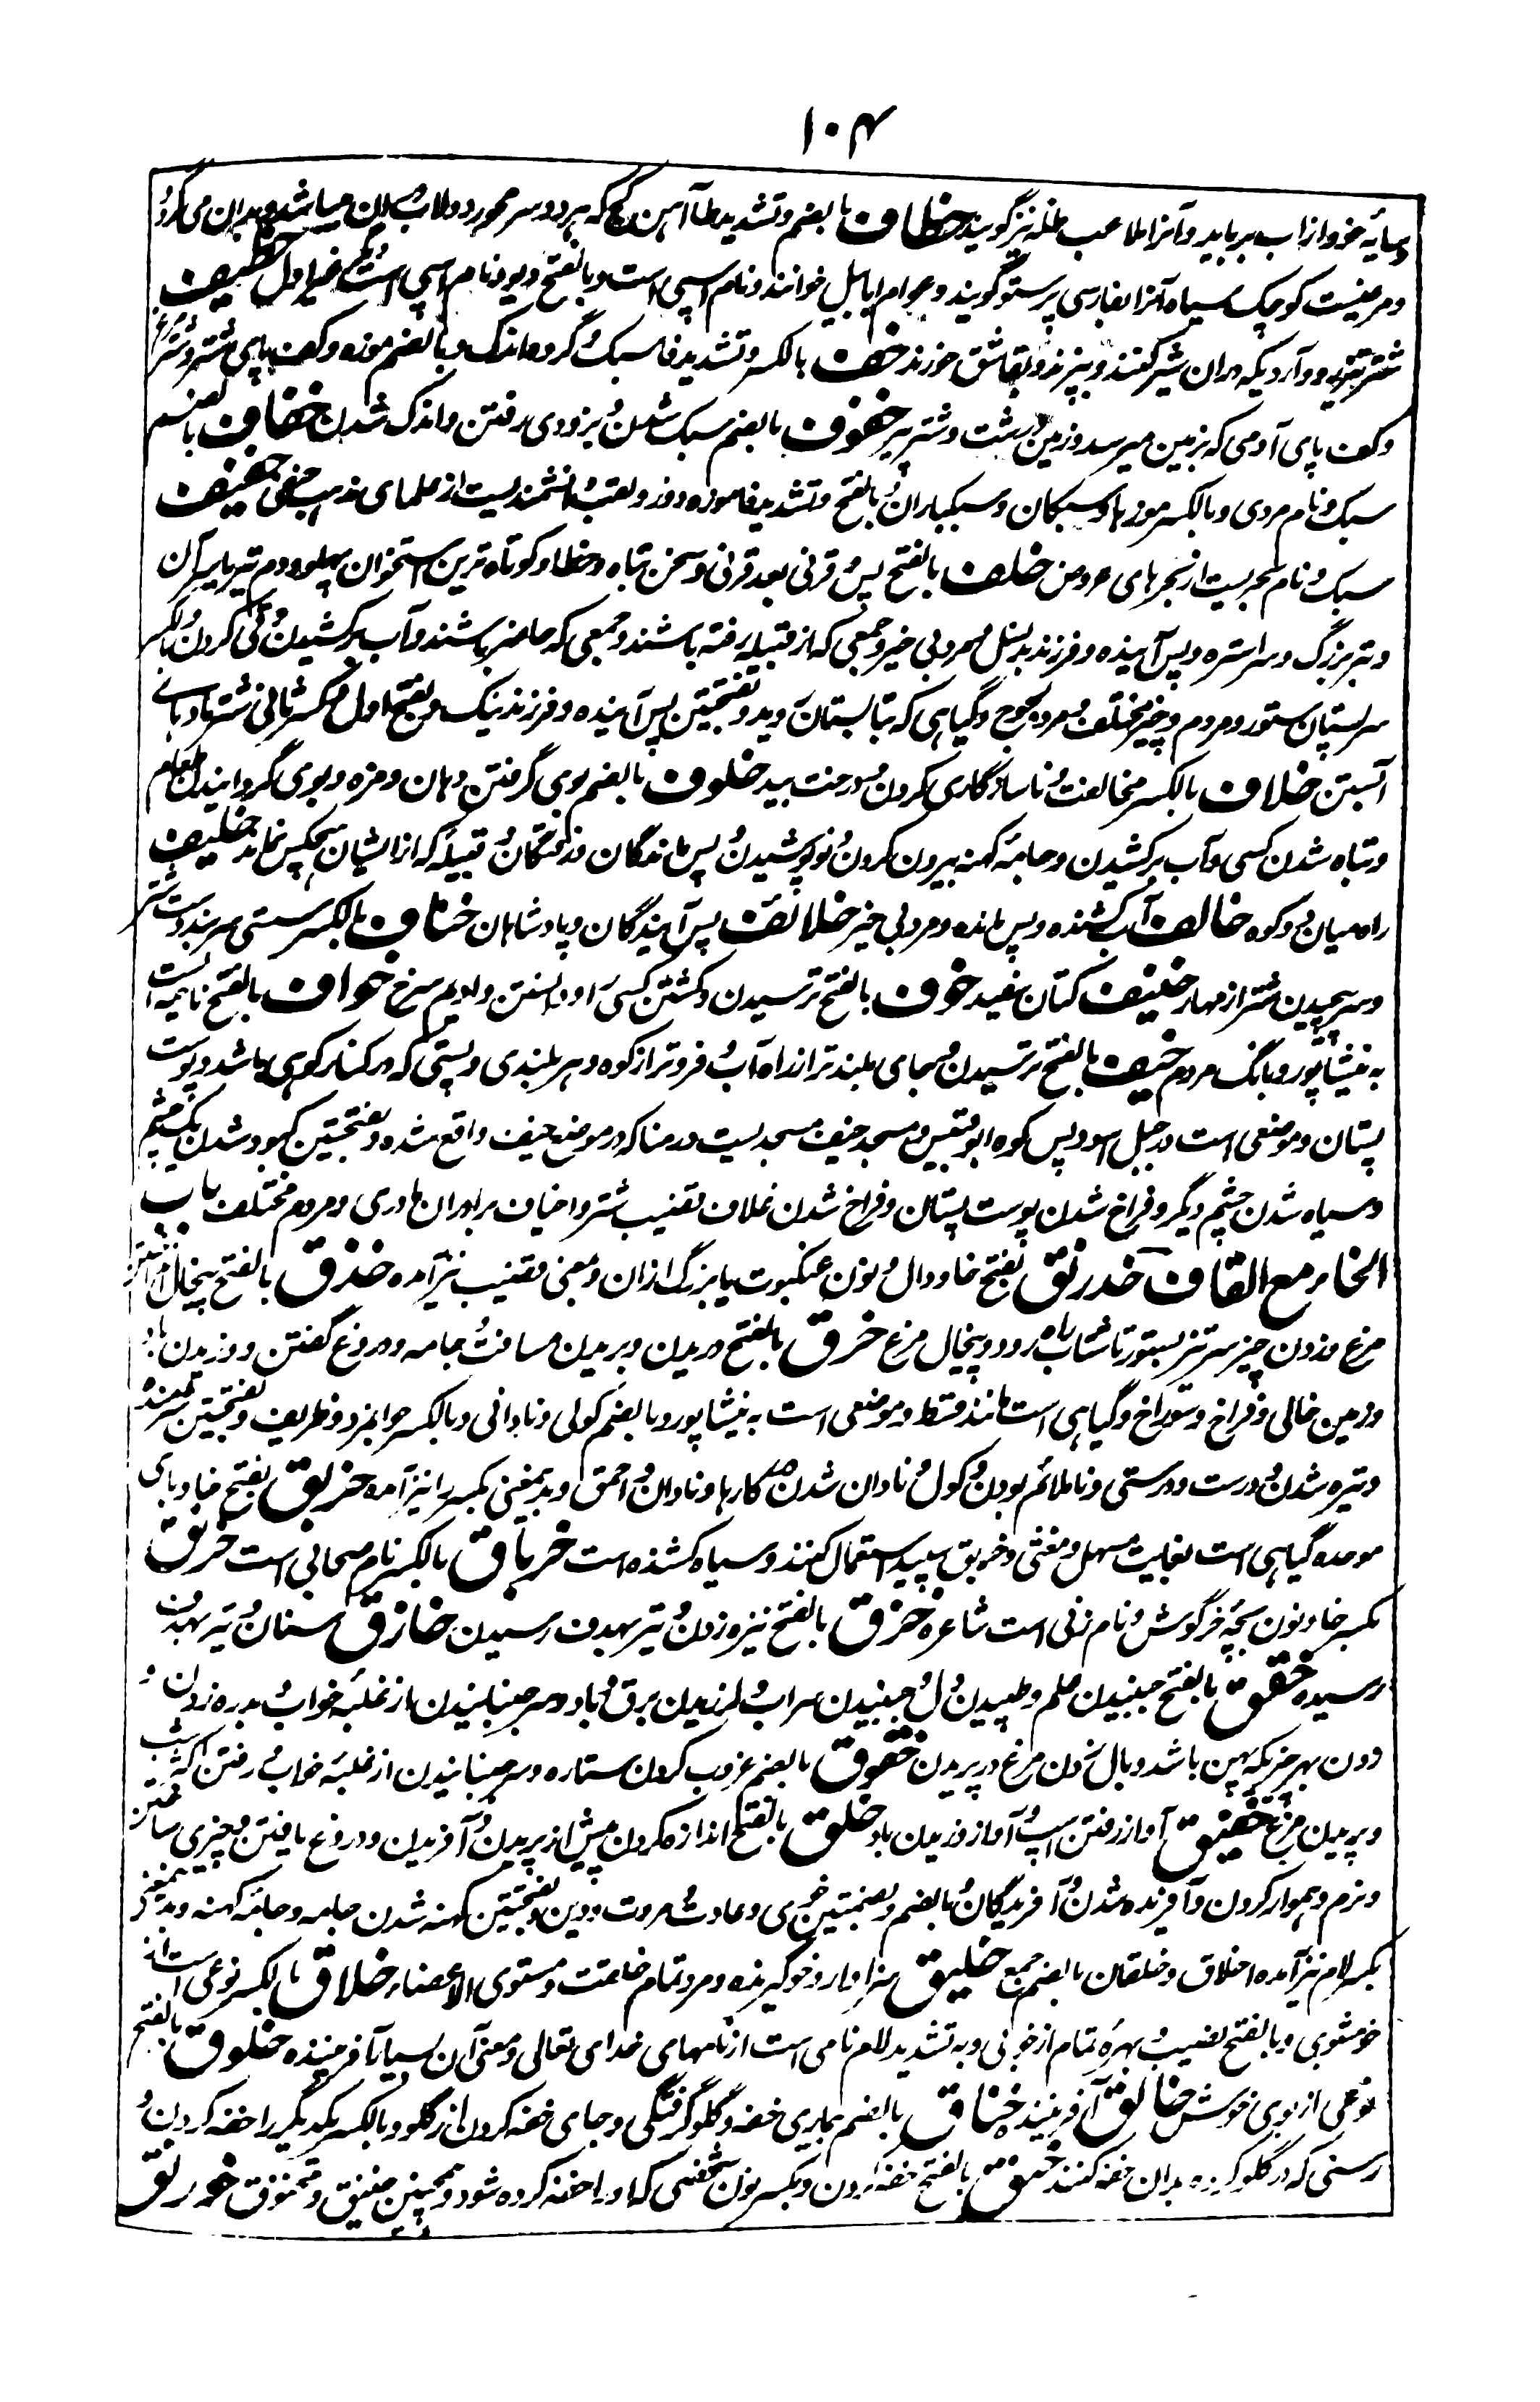 ۱۰۴
وسایهٔ خود از آب برباید و آنرا ملاعب ظله نیز گویند خطاف بالضم و تشدید طا آهن کج که بر دو سر محور دولاب بدان می گردد
و مرغیست کوچک سیاه آنرا بفارسی پرستو گویند و عوام ابابیل خوانند و نام اسپی است و بالفتح دیو و نام اسپی است خطیف
شتر تیزرو و آردیکه در ان شیر کنند و بپزند و بقاشق خورند خف بالکسر و تشدید فا سبک و گروه اندک و بالضم موزه و کف پای شتر و شترمرغ
و کف پای آدمی که بزمین میرسد و زمین درشت و شتر پیر خفوف بالضم سبک شدن و بزودی رفتن و اندک شدن خفاف بالضم
سبک و نام مردی و بالکسر موزها و سبکان و سبکباران و بالفتح و تشدید فا موزه دوز و لقب دانشمندیست از علمای مذهب حنفی خفیف
سبک و نام بحریست از بحرهای عروض خلف بالفتح پس و قرنی بعد قرنی و سخن تباه و خطا و کوتاه ترین استخوان پهلو و دم تبر یا سر آن
و تبر بزرگ و سر استره و پس آینده و فرزند بد و نسل و مرد بی خیر و جمعی که از قبیله رفته باشند و جمعی که حاضر باشند و آب برکشیدن و قی کردن و بالکسر
سر پستان ستور و مردم و چیز مختلف و مرد لجوج و گیاهی که بتابستان روید و بفتحتین پس آینده و فرزند نیک و بفتح اول و کسر ثانی شترماده‌های
آبستن خلاف بالکسر مخالفت و ناسازگاری کردن و درخت بید خلوف بالضم بوی گرفتن دهان و مزه و بوی گردانیدن طعام
و تباه شدن کسی و آب برکشیدن و جامهٔ کهنه بیرون کردن و نو پوشیدن و پس ماندگان و رفتگان و قبیله که از ایشان هیچکس نماند خلیف
راه میان دو کوه خالف آب کشنده و پس مانده و مرد بی خیر خلائف پس آیندگان و پادشاهان خناف بالکسر سستی سر بند دست شتر
و سر پیچیدن شتر از مهار خنیف کتان سفید خوف بالفتح ترسیدن و کشتن کسی را و دانستن و ادیم سرخ خواف بالفتح ناحیه است
به نیشاپور و بانگ مردم خیف بالفتح ترسیدن و جای بلندتر از راه آب و فروتر از کوه و هر بلندی و پستی که در کنار کوهی باشد و پوست
پستان و موضعی است در جبل اسود پس کوه ابوقبیس و مسجد خیف مسجدیست در منا که در موضع خیف واقع شده و بفتحتین کبود شدن یک چشم
و سیاه شدن چشم دیگر و فراخ شدن پوست پستان و فراخ شدن غلاف قضیب شتر و اخیاف برادران مادری و مردم مختلف باب
الخاء مع القاف خدرنق بفتح خا و دال و نون عنکبوت یا بزرگ از ان و بمعنی قضیب نیز آمده خذق بالفتح پیخال انداختن
مرغ و زدن چیز سر تیز بستور تا شتاب راه رود و پیخال مرغ خرق بالفتح دریدن و بریدن مسافت و جامه و دروغ گفتن و وزیدن باد
و زمین خالی و فراخ و سوراخ و گیاهی است مانند قسط و موضعی است به نیشاپور و بالضم کولی و نادانی و بالکسر جوانمرد و ظریف و بفتحتین شرمنده
و تیره شدن و درست و درستی و ناملائم بودن و کول و نادان شدن در کارها و نادان و احمق و بدینمعنی بکسر را نیز آمده خربق بفتح خا و بای
موحده گیاهی است بغایت مسهل و مغثی و خربق سپید استعمال کنند و سیاه کشنده است خرباق بالکسر نام صحابی است خرنق
بکسر خا و نون بچهٔ خرگوش و نام زنی است شاعره خزق بالفتح نیزه زدن و تیر بهدف رسیدن خازق سنان و تیر بهدف
رسیده خفق بالفتح جنبیدن علم و طپیدن دل و جنبیدن سراب و لرزیدن برق و باد و سر جنبانیدن از غلبهٔ خواب و بدره زدن و
زدن بهر چیزیکه پهن باشد و بال زدن مرغ در پریدن خفوق بالضم غروب کردن ستاره و سر جنبانیدن از غلبهٔ خواب و رفتن اکثر شب
و پریدن مرغ خفیق آواز رفتن اسپ و آواز وزیدن باد خلق بالفتح اندازه کردن پیش از بریدن و آفریدن و دروغ بافتن و چیزی ساختن
و نرم و هموار کردن و آفریده شدن و آفریدگان و بالضم و بضمتین خوی و عادت و مروت و دین و بفتحتین کهنه شدن جامه و جامهٔ کهنه و بدینمعنی
بکسر لام نیز آمده اخلاق و خلقان بالضم جمع خلیق سزاوار و خوگیرنده و مرد تمام خلقت و مستوی الاعضاء خلاق بالکسر نوعی است از
خوشبوی و بالفتح نصیب و بهرهٔ تمام از خوبی و به تشدید لام نامی است از نامهای خدای تعالی و معنی آن بسیار آفریننده خلوق بالفتح
نوعی از بوی خوش خالق آفریننده خناق بالضم بیماری خفه و گلوگرفتگی و جای خفه کردن از گلو و بالکسر یکدیگر را خفه کردن و
رسنی که در گلو کرده بدان خفه کنند خنق بالفتح خفه کردن و بکسر نون شخصی که او را خفه کرده شود و همچنین خنیق و مخنوق خورنق